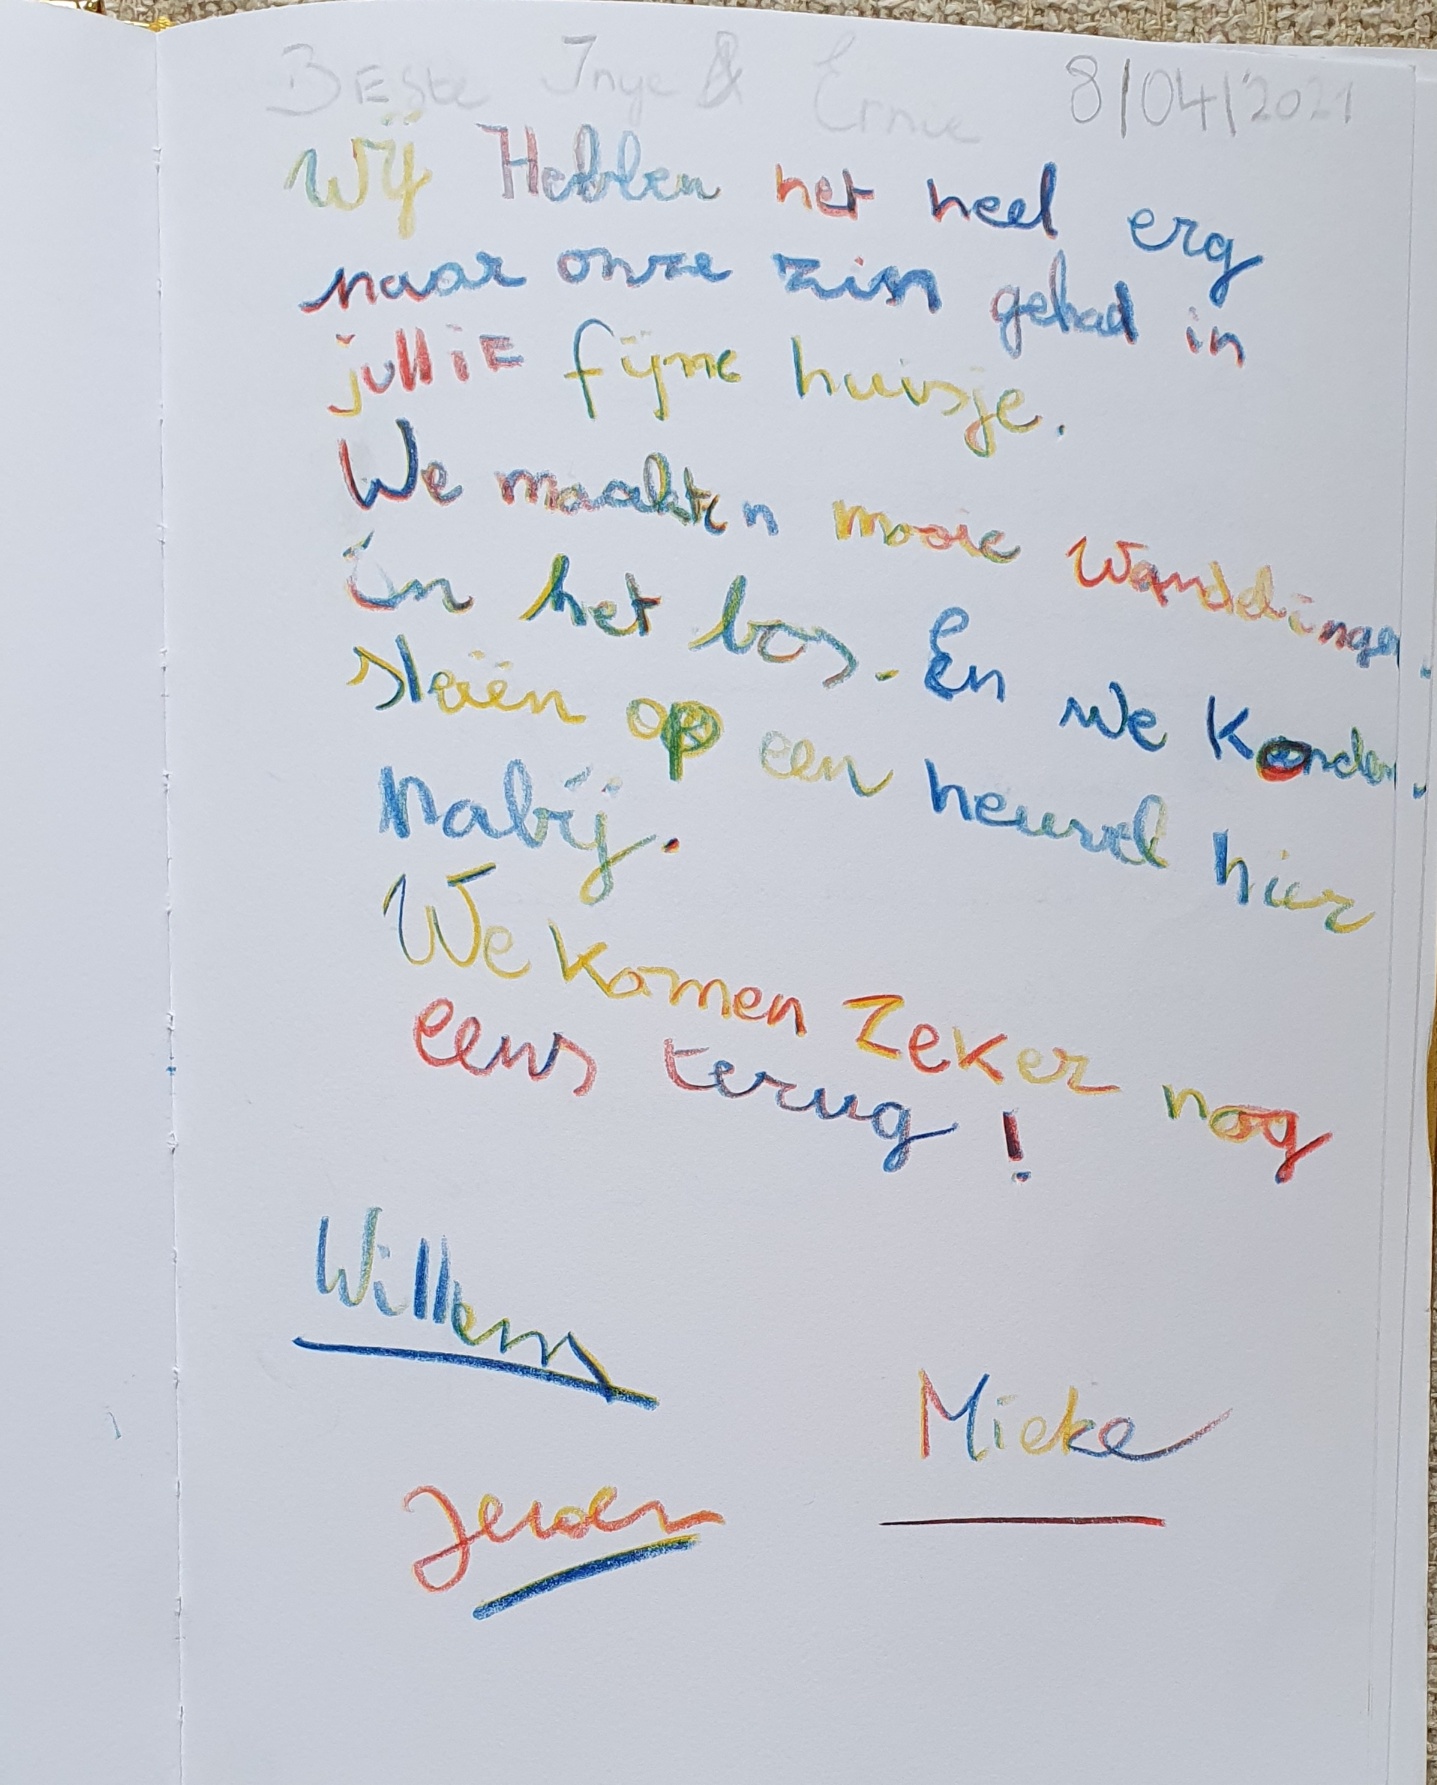 Beste Inge & Ernie 8/04/2021
Wij Hebben het heel erg
naar onze zin gehad in
jullie fijne huisje.
We maakten mooie wandelingen
in het bos. En we konden
sleën op een heuvel hier
nabij.
We komen zeker nog
eens terug!
Willem
Mieke
Jeroen